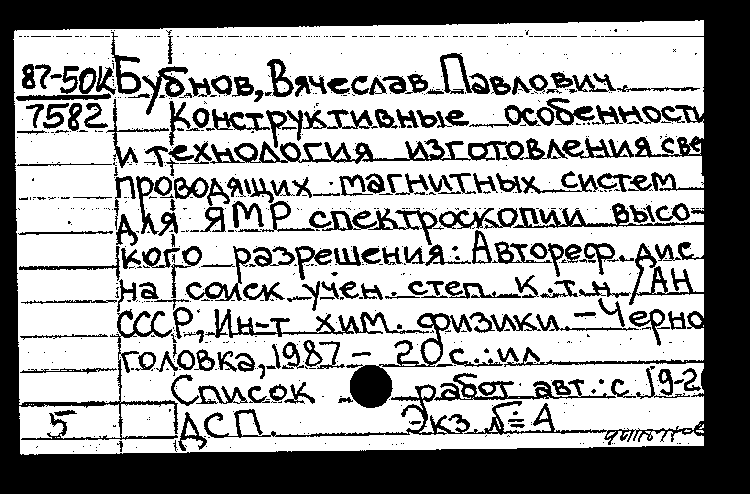 87-50К Бубнов, Вячеслав Павлович.
7582 Конструктивные особенности
и технология изготовления све
проводящих магнитных систем
для ЯМР спектроскопии высо-
кого разрешения: Автореф. дис
на соиск. учен. степ. к.т.н. /АН
СССР, Ин-т хим. физики. - Черно
головка, 1987 - 20 с.: ил
Список работ авт.: с. 19-20
5 ДСП. Экз. № 4